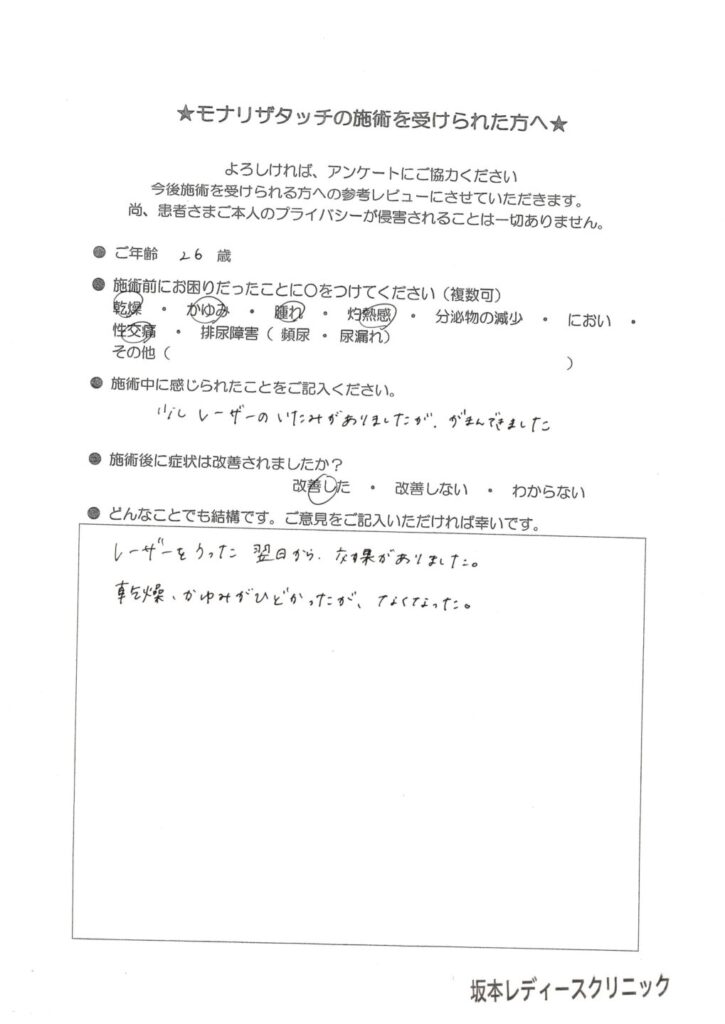 ★モナリザタッチの施術を受けられた方へ★
よろしければ、アンケートにご協力ください
今後施術を受けられる方への参考レビューにさせていただきます。
尚、患者さまご本人のプライバシーが侵害されることは一切ありません。
● ご年齢 26 歳
● 施術前にお困りだったことに〇をつけてください（複数可）
乾燥 ・ かゆみ ・ 腫れ ・ 灼熱感 ・ 分泌物の減少 ・ におい ・
性交痛 ・ 排尿障害（ 頻尿 ・ 尿漏れ）
その他（ ）
● 施術中に感じられたことをご記入ください。
少し レーザーの いたみがありましたが、がまんできました
● 施術後に症状は改善されましたか？
改善した ・ 改善しない ・ わからない
● どんなことでも結構です。ご意見をご記入いただければ幸いです。
レーザーをうった 翌日から、効果がありました。
乾燥、かゆみがひどかったが、なくなった。
坂本レディースクリニック